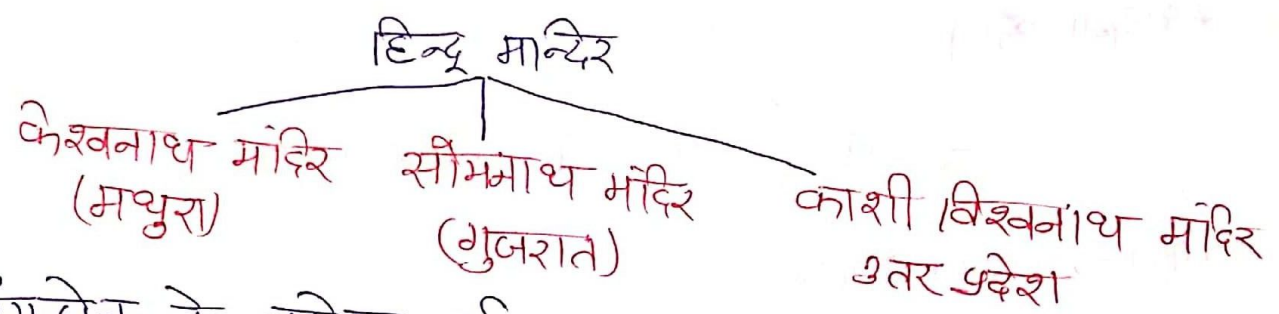 हिन्दू मान्दिर
केश्वनाथ मंदिर
(मथुरा)
सोमनाथ मंदिर
(गुजरात)
काशी विश्वनाथ मंदिर
उतर प्रदेश